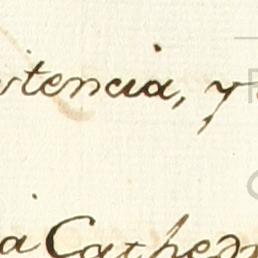 stencia, y
a Cathed